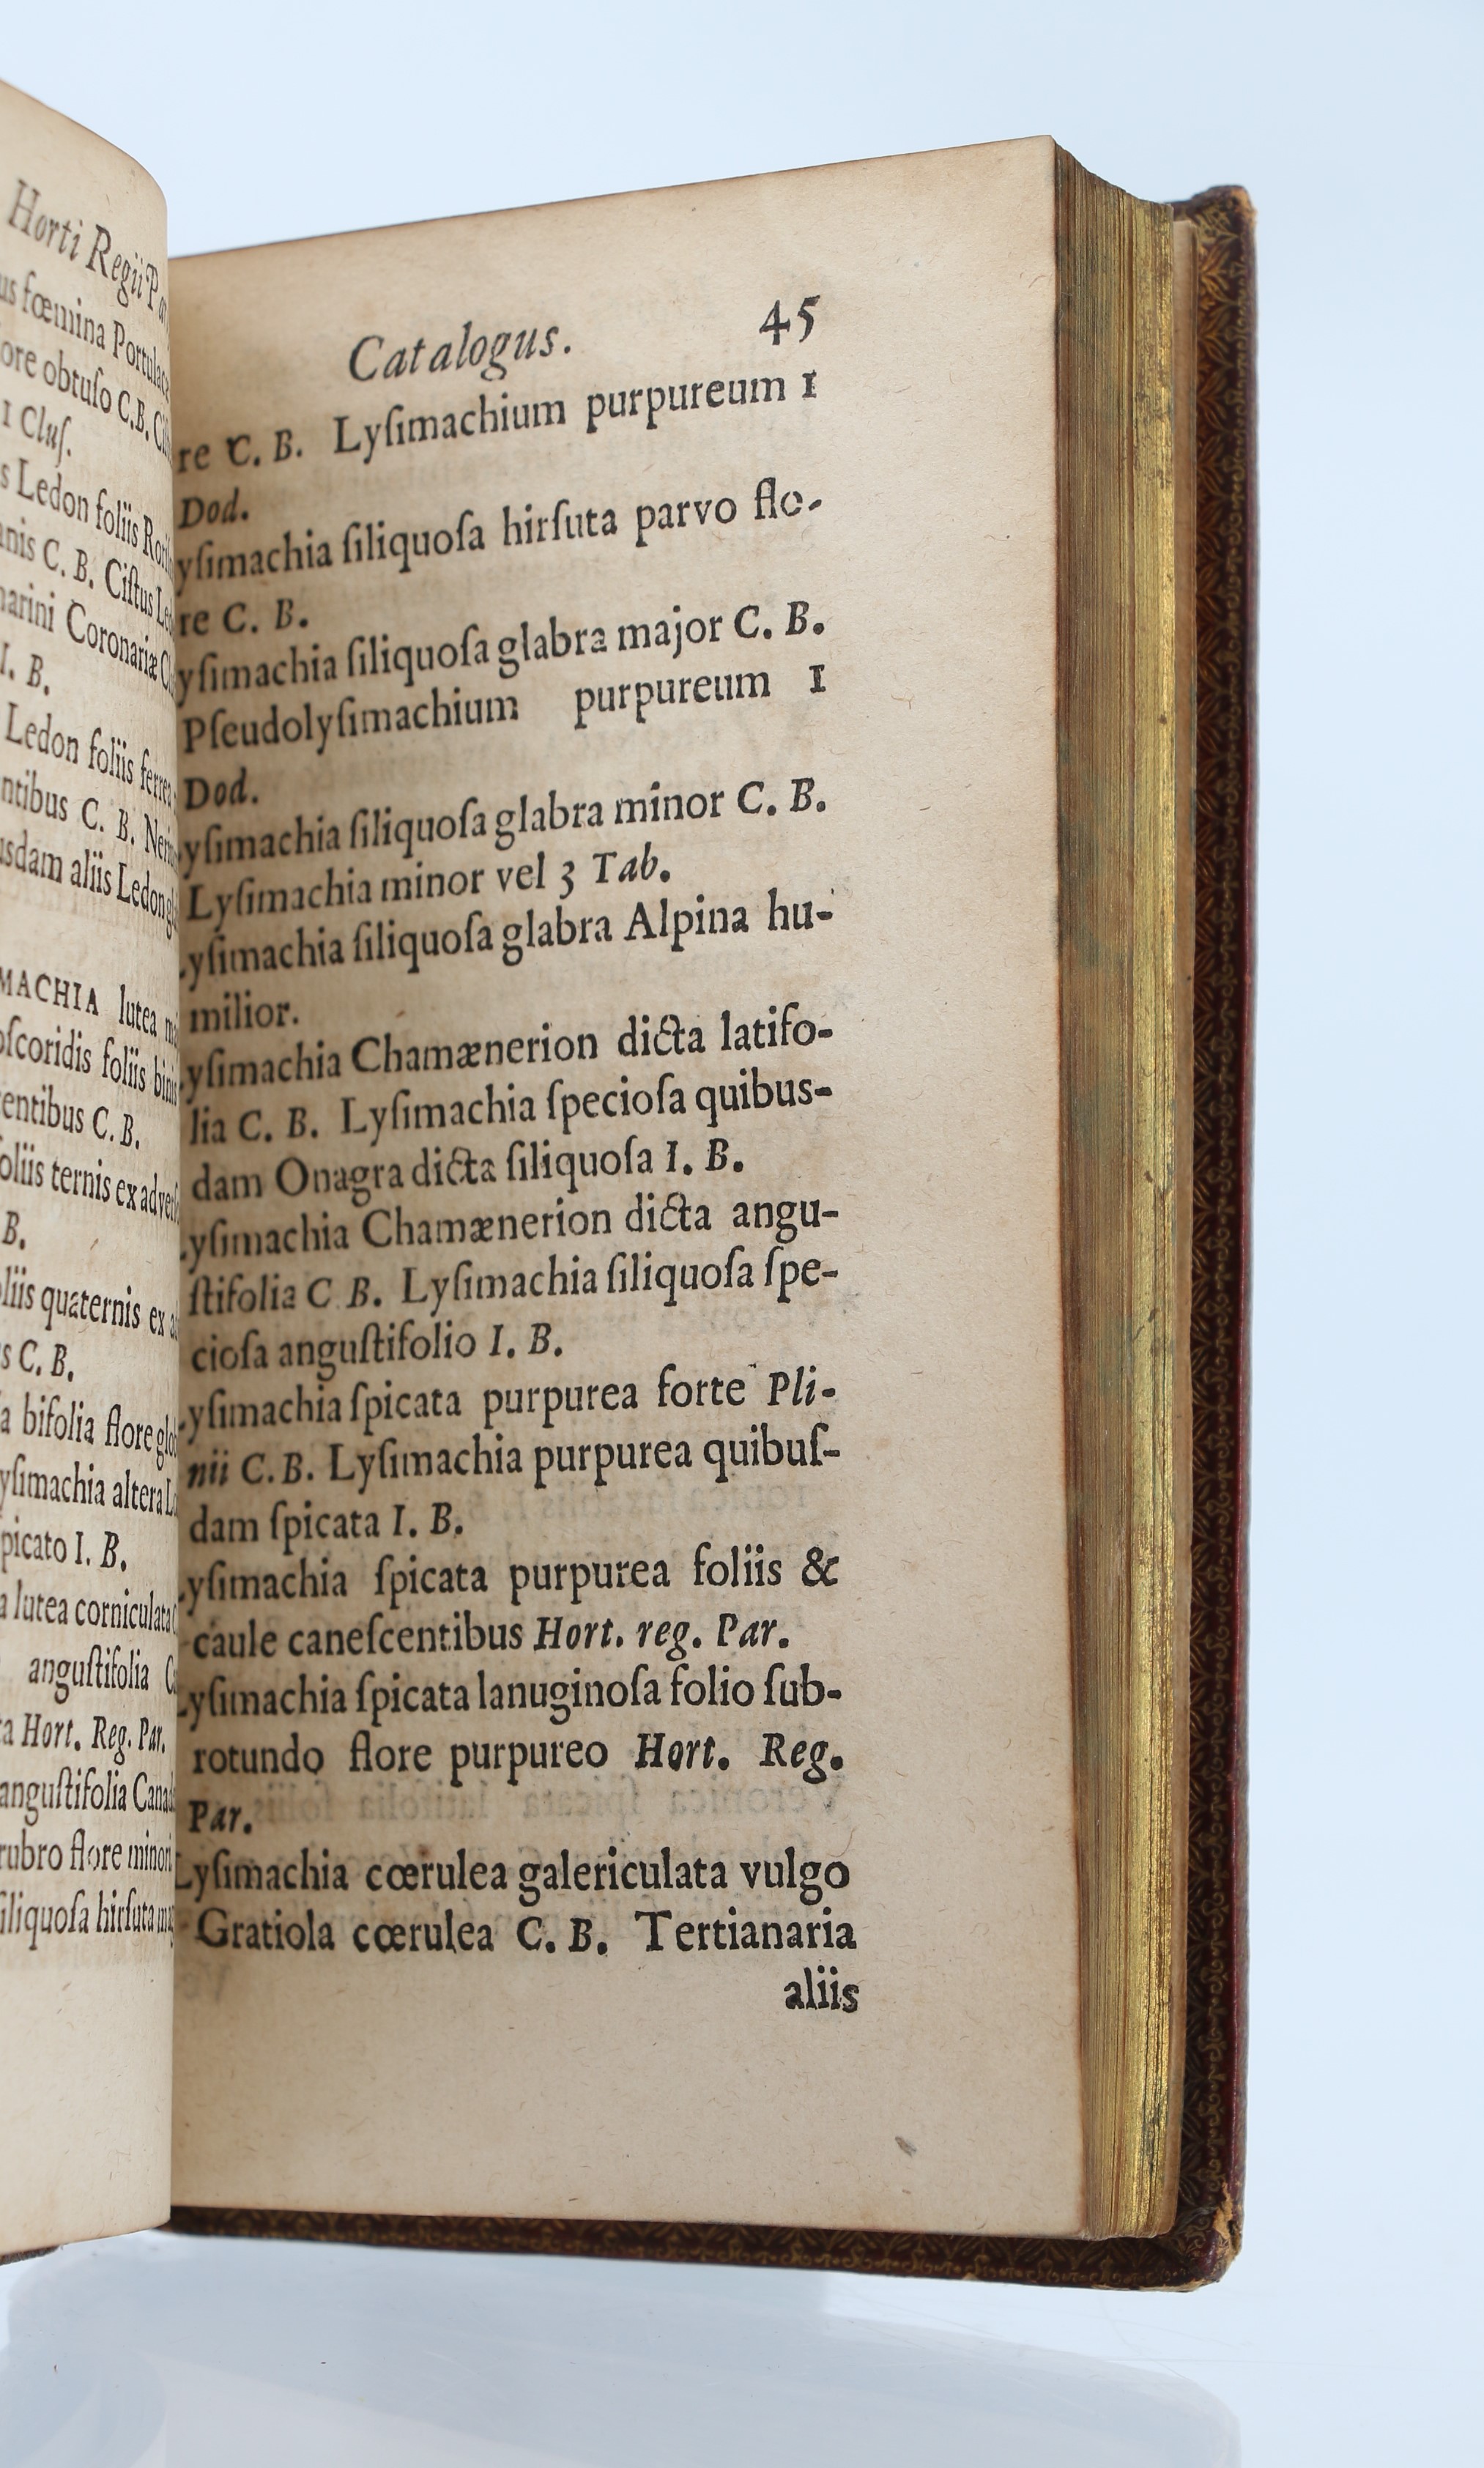 Horti Regii
us fœmina
ore obtuſo C.B.
1 Cluſ.
s Ledon foliis
nis C. B. Ciſtus
narini Coronariæ
I. B.
Ledon foliis
ntibus C. B.
sdam aliis
MACHIA lutea
oſcoridis foliis
entibus C. B.
oliis ternis
B.
liis quaternis ex
s C. B.
a bifolia flore
yſimachia altera
picato I. B.
a lutea corniculata
anguſtifolia
a Hort. Reg. Par.
anguſtifolia
rubro flore
iliquoſa hirſuta
Catalogus. 45
re C. B. Lyſimachium purpureum 1
Dod.
yſimachia ſiliquoſa hirſuta parvo flo-
re C. B.
yſimachia ſiliquoſa glabra major C. B.
Pſeudolyſimachium purpureum 1
Dod.
yſimachia ſiliquoſa glabra minor C. B.
Lyſimachia minor vel 3 Tab.
yſimachia ſiliquoſa glabra Alpina hu-
milior.
yſimachia Chamænerion dicta latifo-
lia C. B. Lyſimachia ſpecioſa quibus-
dam Onagra dicta ſiliquoſa I. B.
yſimachia Chamænerion dicta angu-
ſtifolia C B. Lyſimachia ſiliquoſa ſpe-
cioſa anguſtifolio I. B.
yſimachia ſpicata purpurea forte Pli-
nii C. B. Lyſimachia purpurea quibuſ-
dam ſpicata I. B.
yſimachia ſpicata purpurea foliis &
caule caneſcentibus Hort. reg. Par.
yſimachia ſpicata lanuginoſa folio ſub-
rotundo flore purpureo Hort. Reg.
Par.
Lyſimachia cœrulea galericulata vulgo
Gratiola cœrulea C. B. Tertianaria
aliis